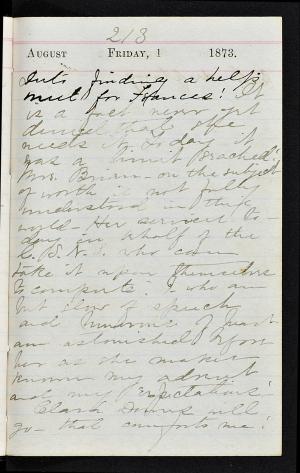 213
August Friday, 1 1873.
Into finding a help
meet for Frances! It
is a fact never yet
denied that she
needs it. To day it
was a limit reached!
Mrs. Brinn - on the subject
of worth is not fully
understood in this
world - Her services to-
day in behalf of the
who can
take it upon themselves
to compute. I who am
but slow of speech
and heart
am astonished before
her as she makes
known my advent
and my "Expectations"
Clara will
go - that comforts me!